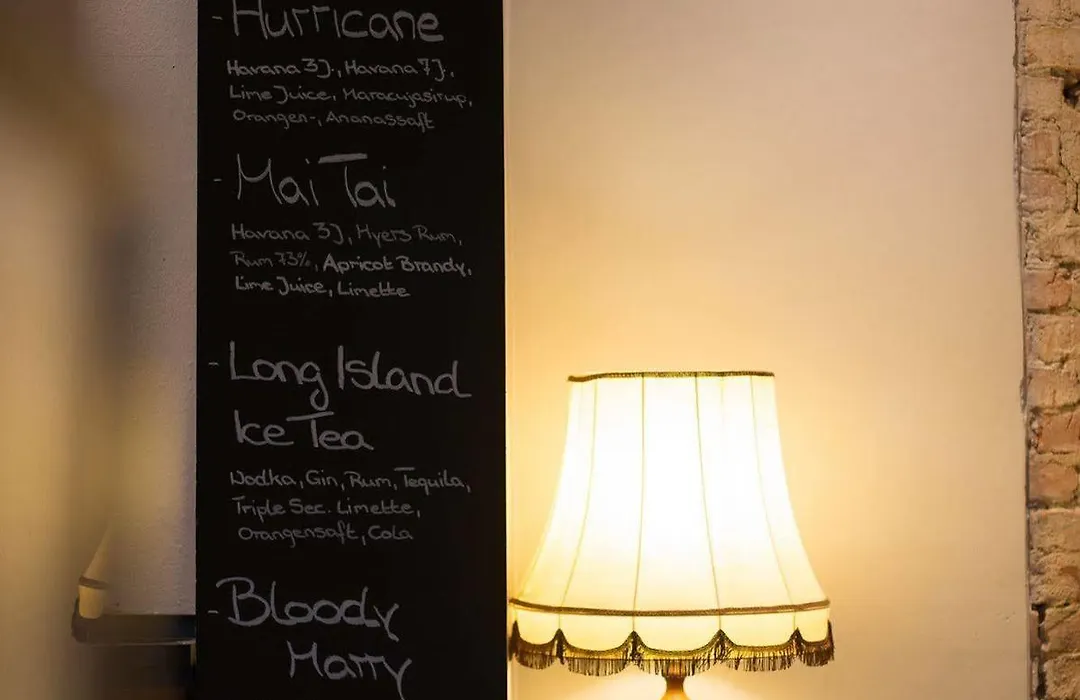 - Hurricane
Havana 3J., Havana 7J.,
Lime Juice, Maracujasirup,
Orangen-, Ananassaft
- Mai Tai
Havana 3J, Myers Rum,
Rum 73%, Apricot Brandy,
Lime Juice, Limette
- Long Island
Ice Tea
Wodka, Gin, Rum, Tequila,
Triple Sec. Limette,
Orangensaft, Cola
- Bloody
Marry